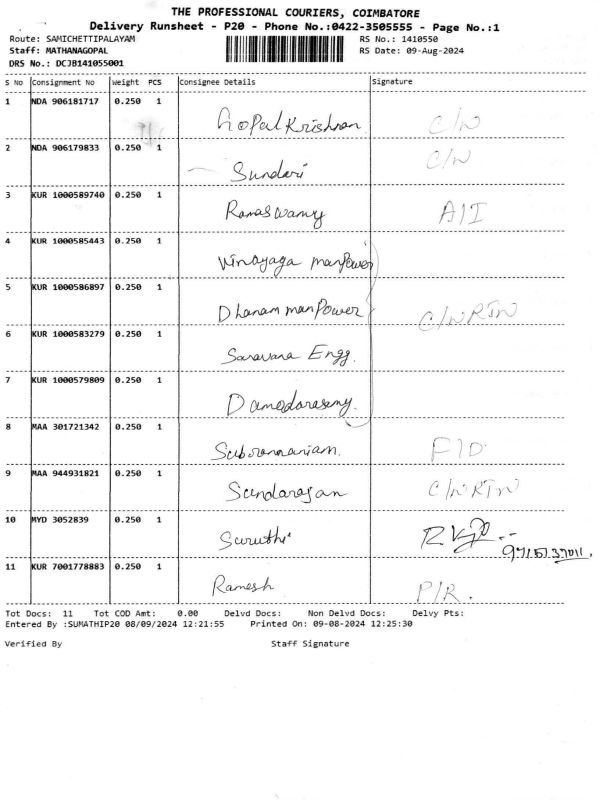 THE PROFESSIONAL COURIERS, COIMBATORE
Delivery Runsheet - P20 - Phone No.:0422-3505555 - Page No.:1
Route: SAMICHETTIPALAYAM RS No.: 1410550
Staff: MATHANAGOPAL RS Date: 09-Aug-2024
DRS No.: DCJB141055001
S No Consignment No Weight PCS Consignee Details Signature
1 NDA 906181717 0.250 1 Gopal Krishnan C/N
2 NDA 906179833 0.250 1 Sundari C/N
3 KUR 1000589740 0.250 1 Ramaswamy A/I
4 KUR 1000585443 0.250 1 Vinayaga manPower
5 KUR 1000586897 0.250 1 Dhanam manPower C/NRTN
6 KUR 1000583279 0.250 1 Saravana Engg.
7 KUR 1000579809 0.250 1 Damodarasamy
8 MAA 301721342 0.250 1 Subramaniam. F/D
9 MAA 944931821 0.250 1 Sundarajan C/NRTN
10 MYD 3052839 0.250 1 Suruthi
11 KUR 7001778883 0.250 1 Ramesh P/R.
Tot Docs: 11 Tot COD Amt: 0.00 Delvd Docs: Non Delvd Docs: Delvy Pts:
Entered By :SUMATHIP20 08/09/2024 12:21:55 Printed On: 09-08-2024 12:25:30
Verified By Staff Signature